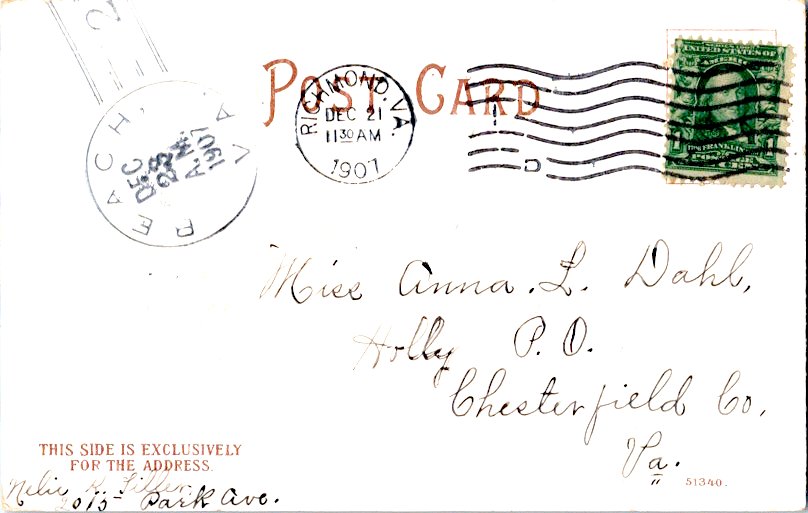 2
POST CARD
RICHMOND, VA.
DEC 21
11 30 AM
1907
D
UNITED STATES OF
AMERICA
FRANKLIN
PEACH, VA
DEC
23
A.M.
1907
Miss Anna. L. Dahl,
Holly P. O.
Chesterfield Co,
Va.
THIS SIDE IS EXCLUSIVELY
FOR THE ADDRESS.
51340.
Nelie R.
2015 Park Ave.